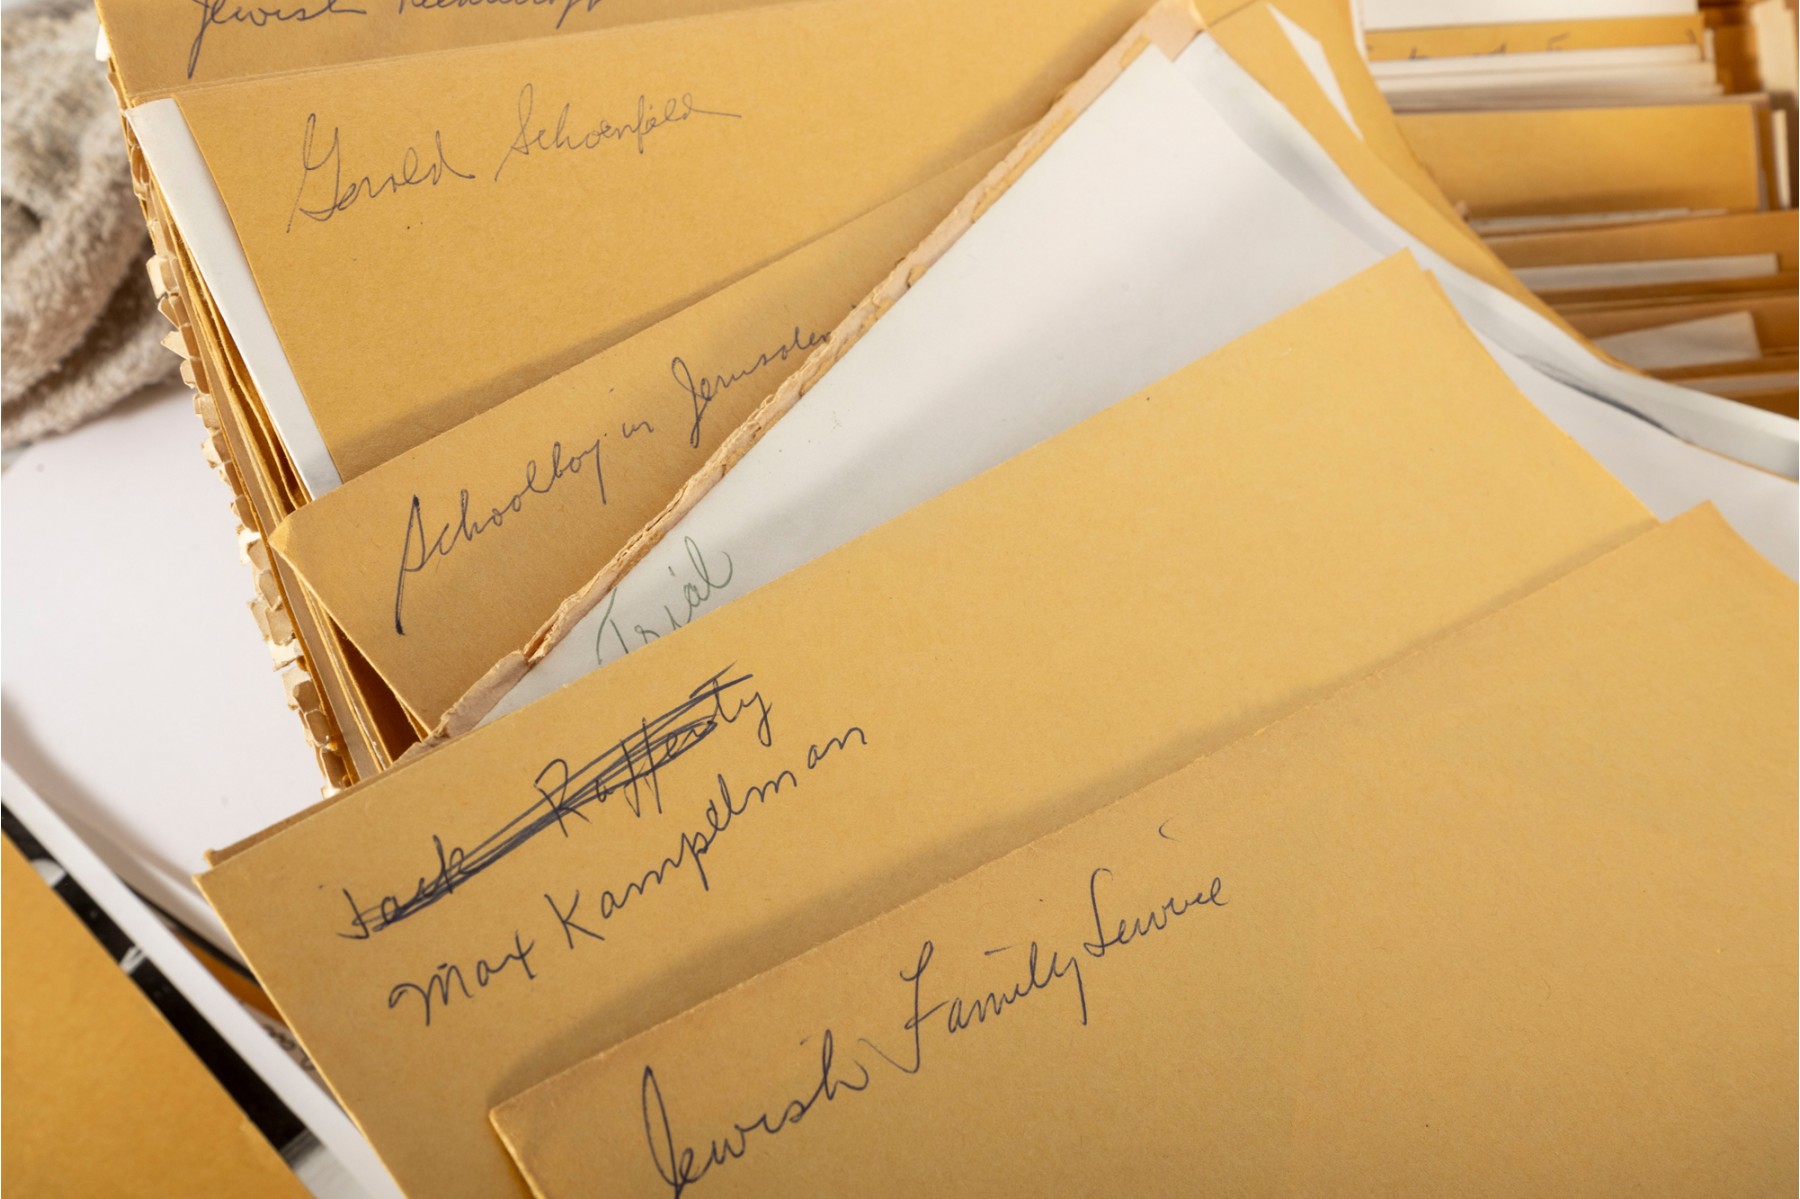 Jewish
Gerald Schoenfeld
Schoolboy in Jerusalem
Trial
Jack Rafferty
Max Kampelman
Jewish Family Service